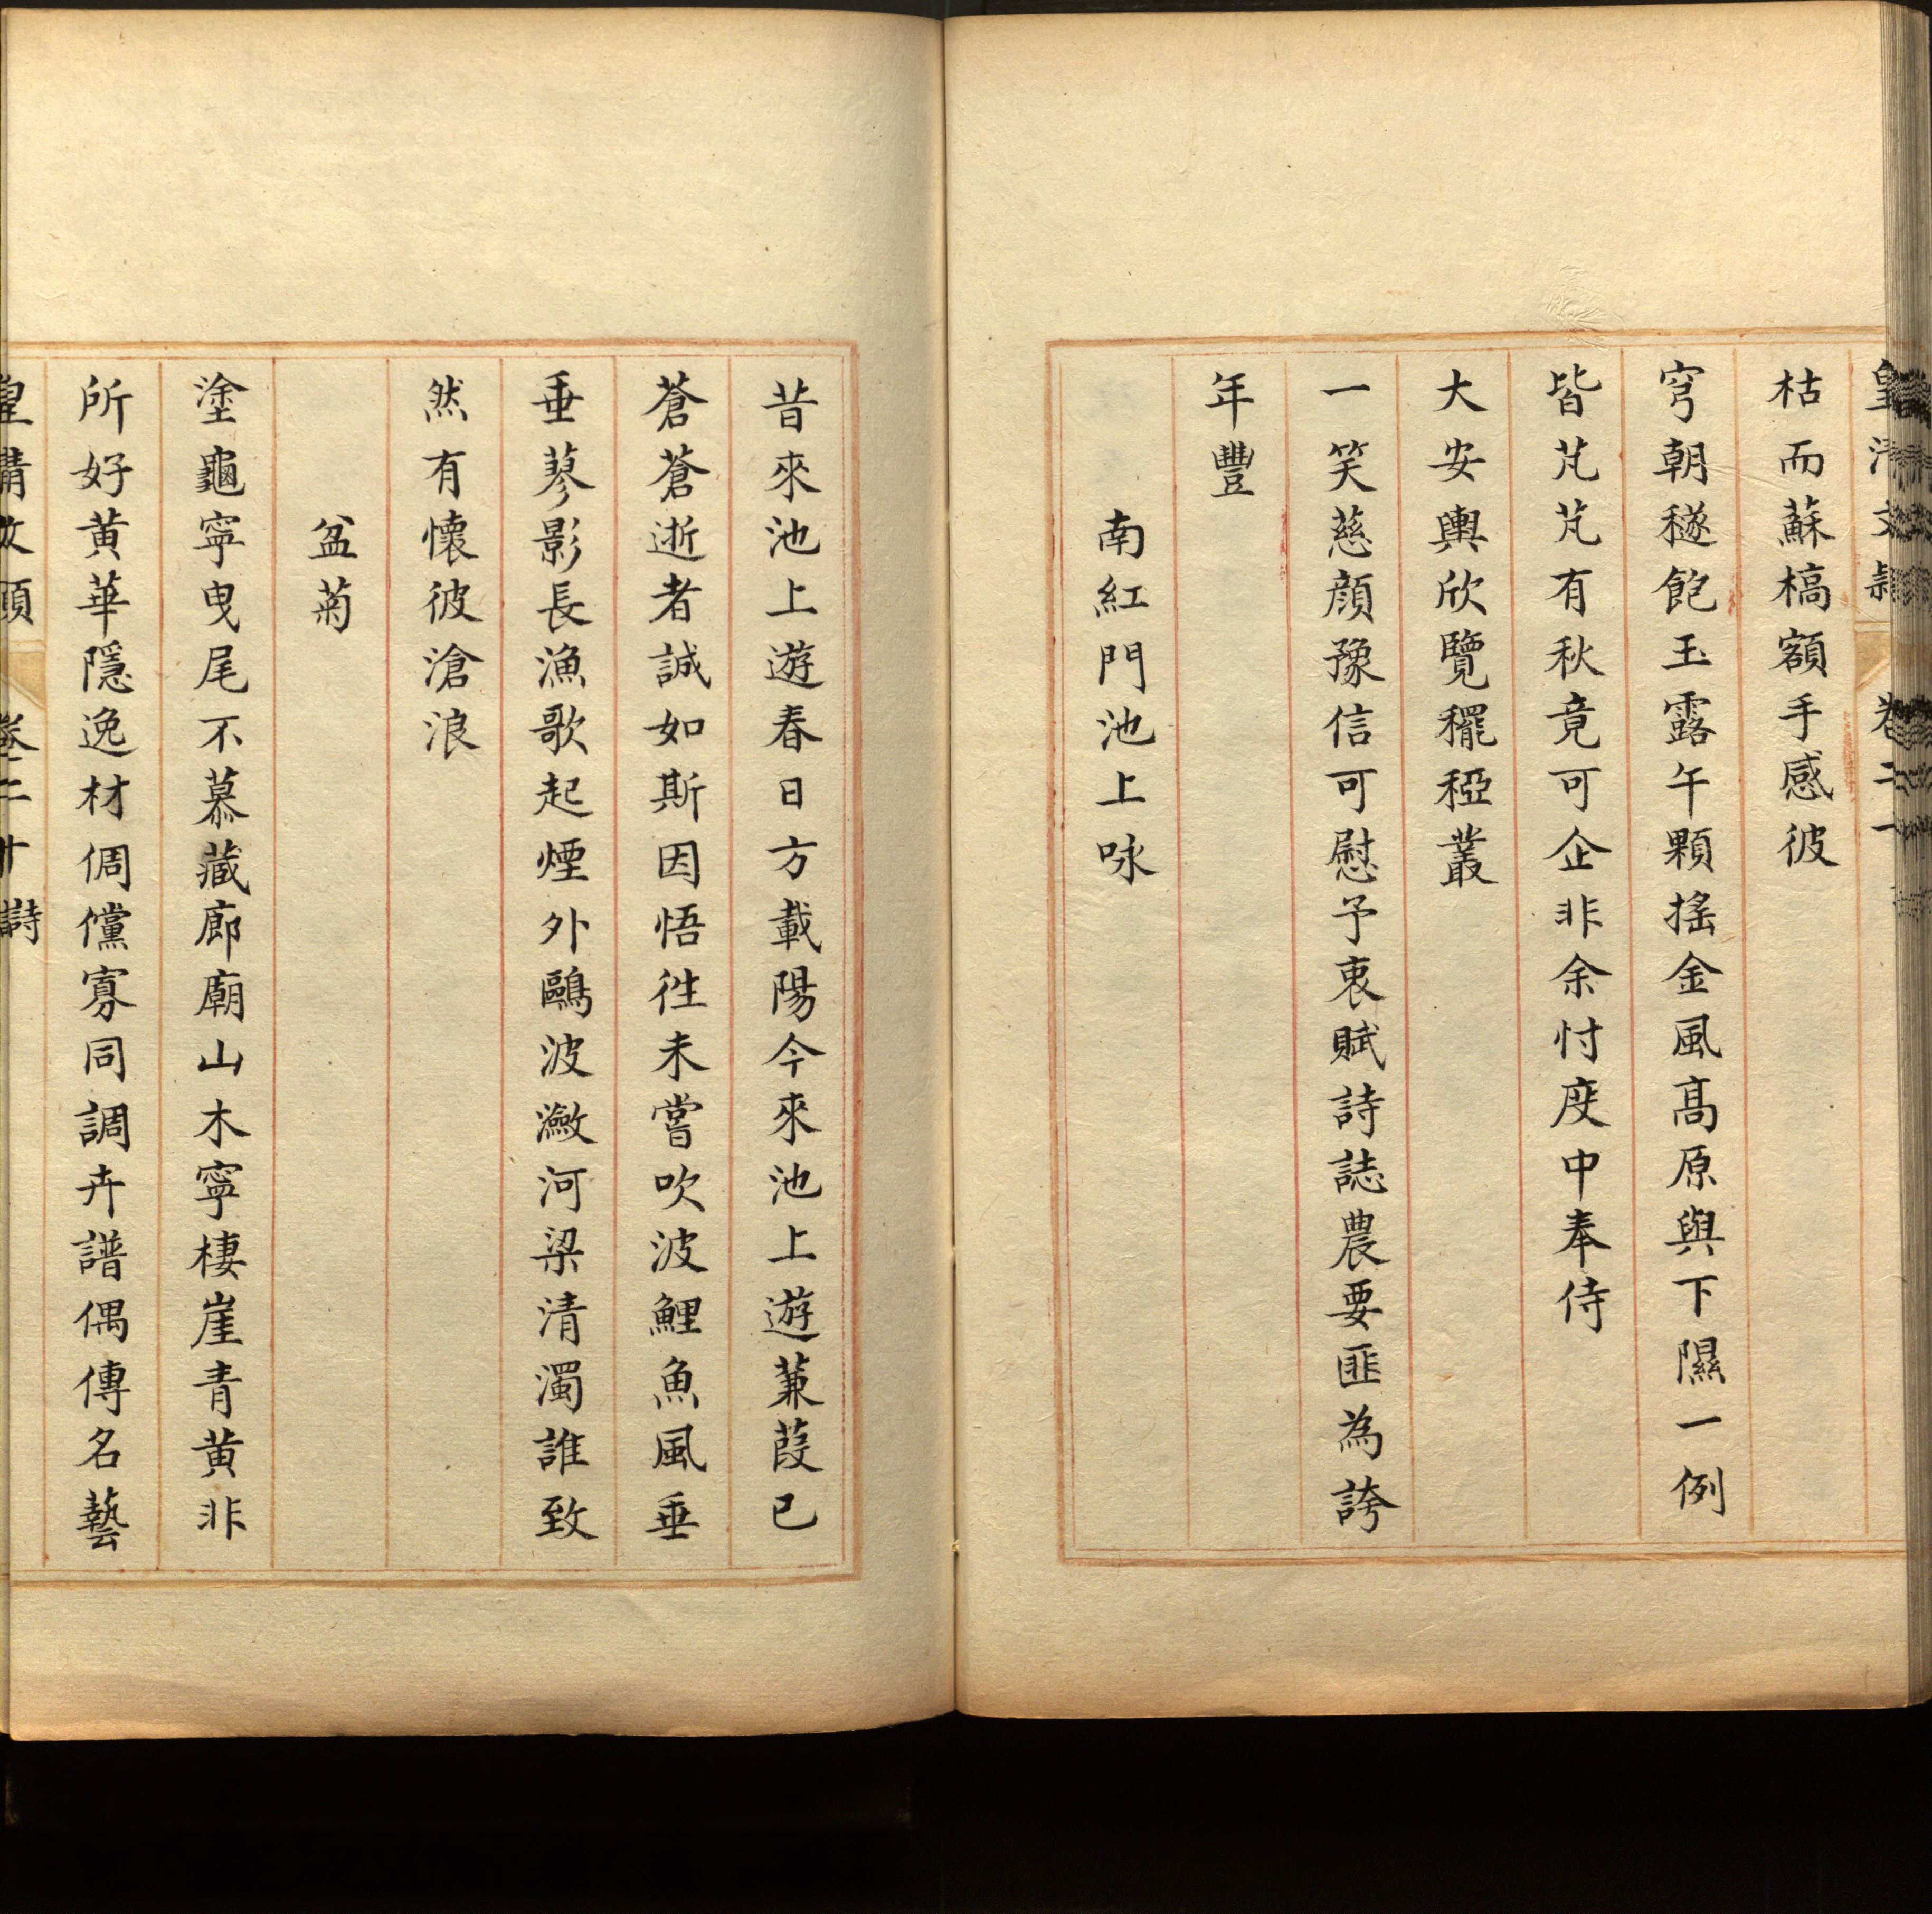 皇清文穎　卷二十
枯而蘇槁額手感彼
穹朝穟飽玉露午顆搖金風高原與下隰一例
皆芃芃有秋竟可企非余忖度中奉侍
大安輿欣覽䆉稏叢
一笑慈顏豫信可慰予衷賦詩誌農要匪為誇
年豐
南紅門池上咏
昔來池上遊春日方載陽今來池上遊蒹葭已
蒼蒼逝者誠如斯因悟徃未嘗吹波鯉魚風垂
垂蓼影長漁歌起煙外鷗波瀲河梁清濁誰致
然有懷彼滄浪
盆菊
塗龜寧曳尾不慕藏廊廟山木寧棲崖青黃非
所好黃華隱逸材倜儻寡同調卉譜偶傳名藝
皇清文穎　卷二十　詩